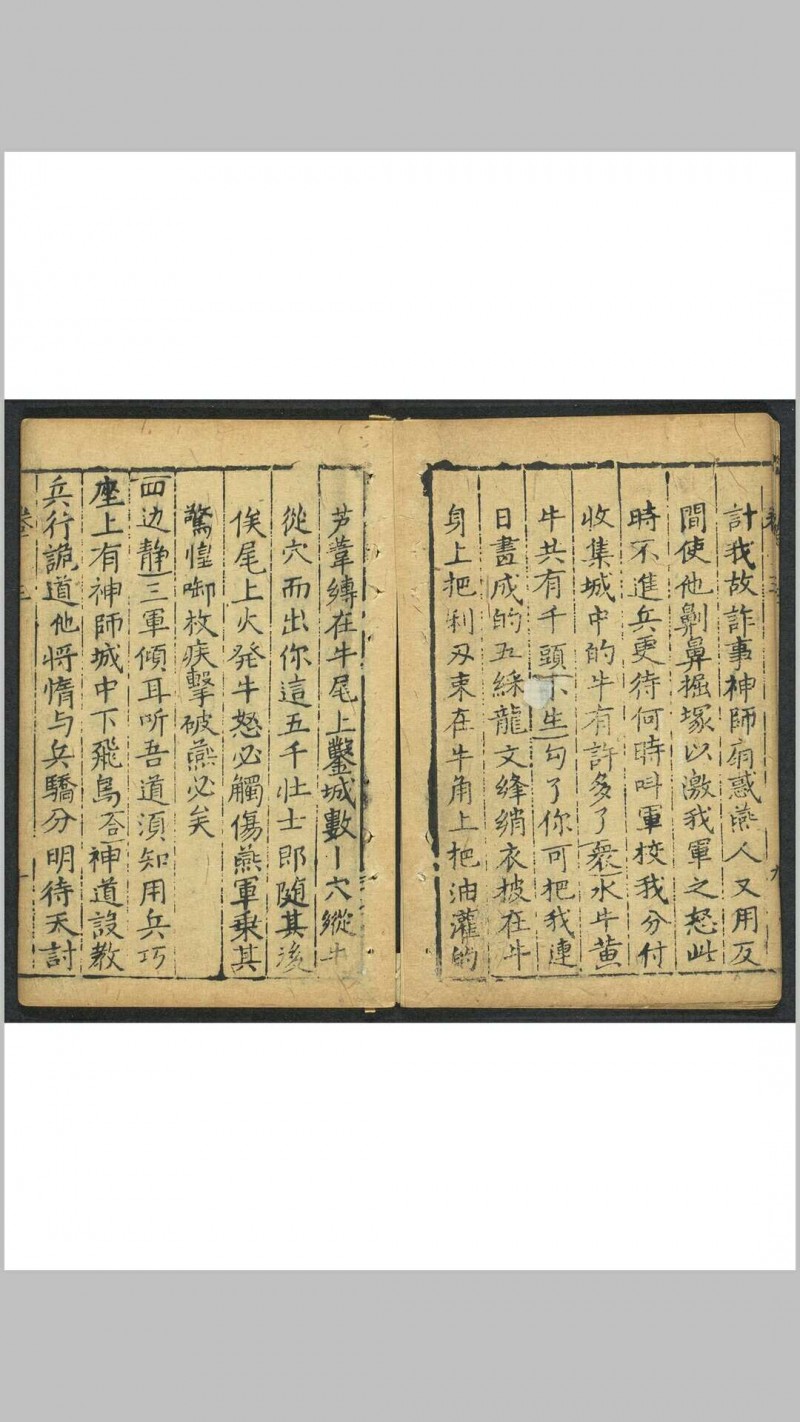 計我故詐事神師扇惑燕人又用反
間使他劓鼻掘塚以激我軍之怒此
時不進兵更待何時叫軍校我分付
收集城中的牛有許多了衆水牛黄
牛共有千頭下生勾了你可把我連
日畫成的五綵龍文絳綃衣披在牛
身上把利刃束在牛角上把油灌的
芦葦縛在牛尾上鑿城數十穴縱牛
從穴而出你這五千壮士即随其後
俟尾上火発牛怒必觸傷燕軍乗其
驚惶啣枚疾擊破燕必矣
四边静三軍傾耳听吾道須知用兵巧
座上有神師城中下飛鳥合神道設教
兵行詭道他將惰与兵驕分明待天討